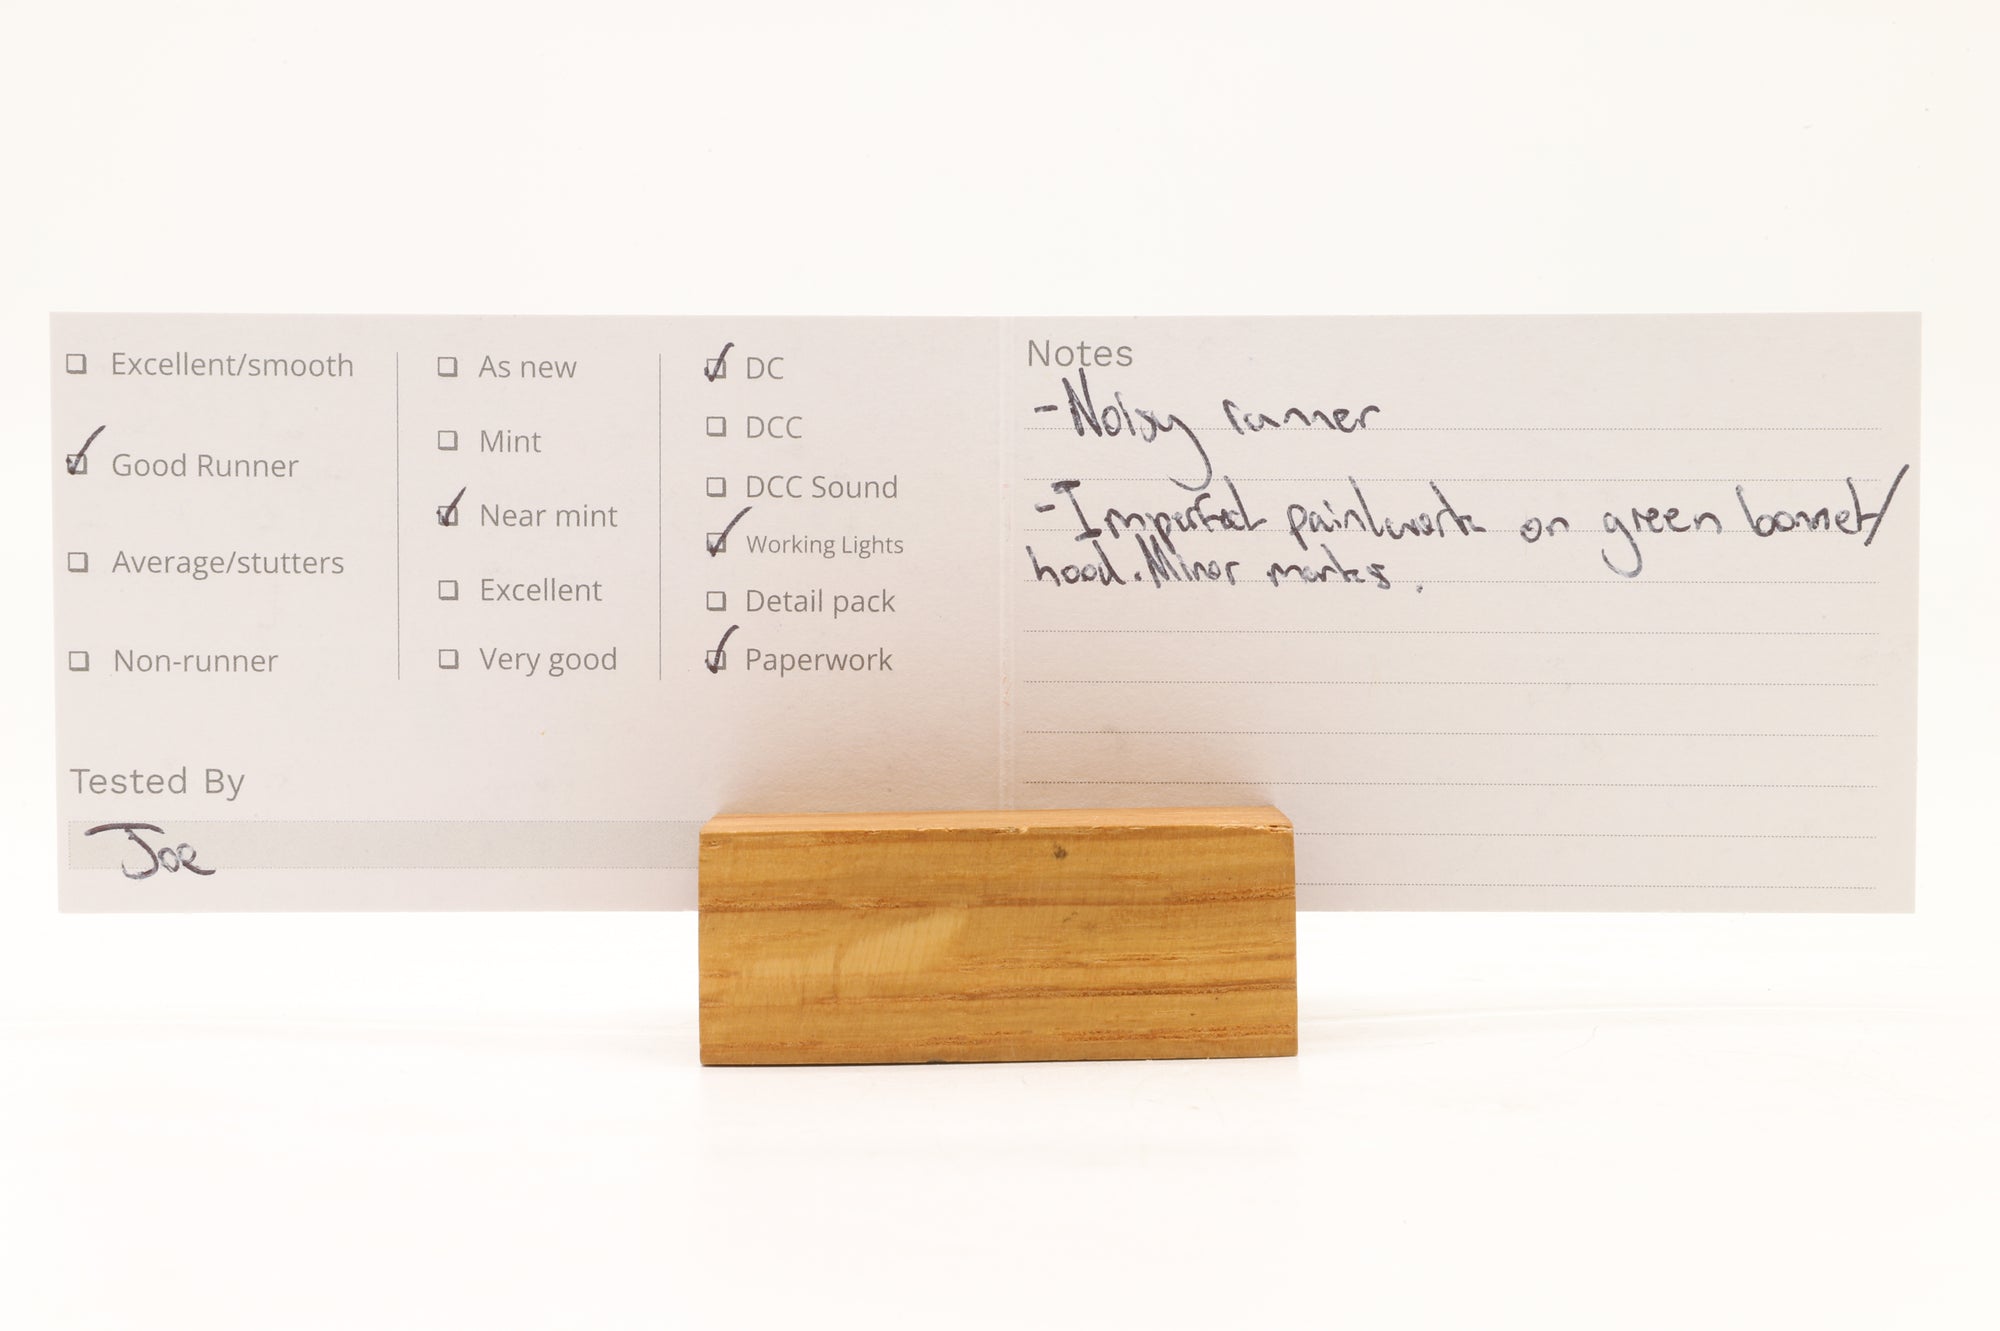 Excellent/smooth
Good Runner
Average/stutters
Non-runner
As new
Mint
Near mint
Excellent
Very good
DC
DCC
DCC Sound
Working Lights
Detail pack
Paperwork
Tested By
Joe
Notes
- Noisy runner
- Imperfect paintwork on green bonnet/
hood. Minor marks.